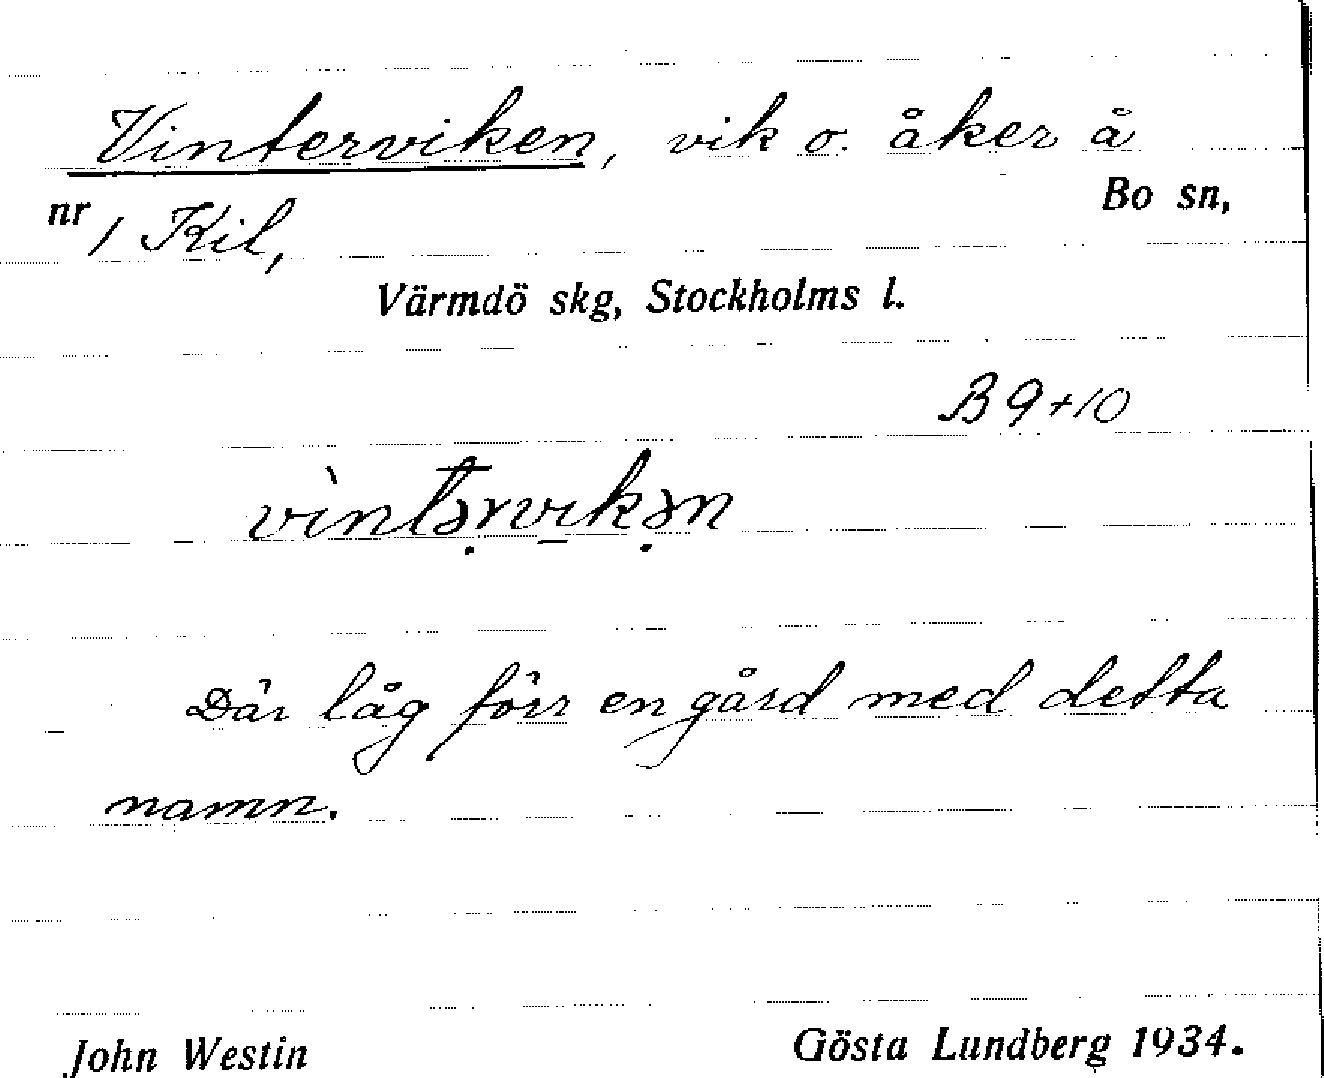 Vinterviken, vik o. åker å
Bo sn,
nr 1 Kil,
Värmdö skg, Stockholms l.
B 9+10
vìntə̣rvı̱kə̣n
Där låg förr en gård med detta
namn.
John Westin
Gösta Lundberg 1934.